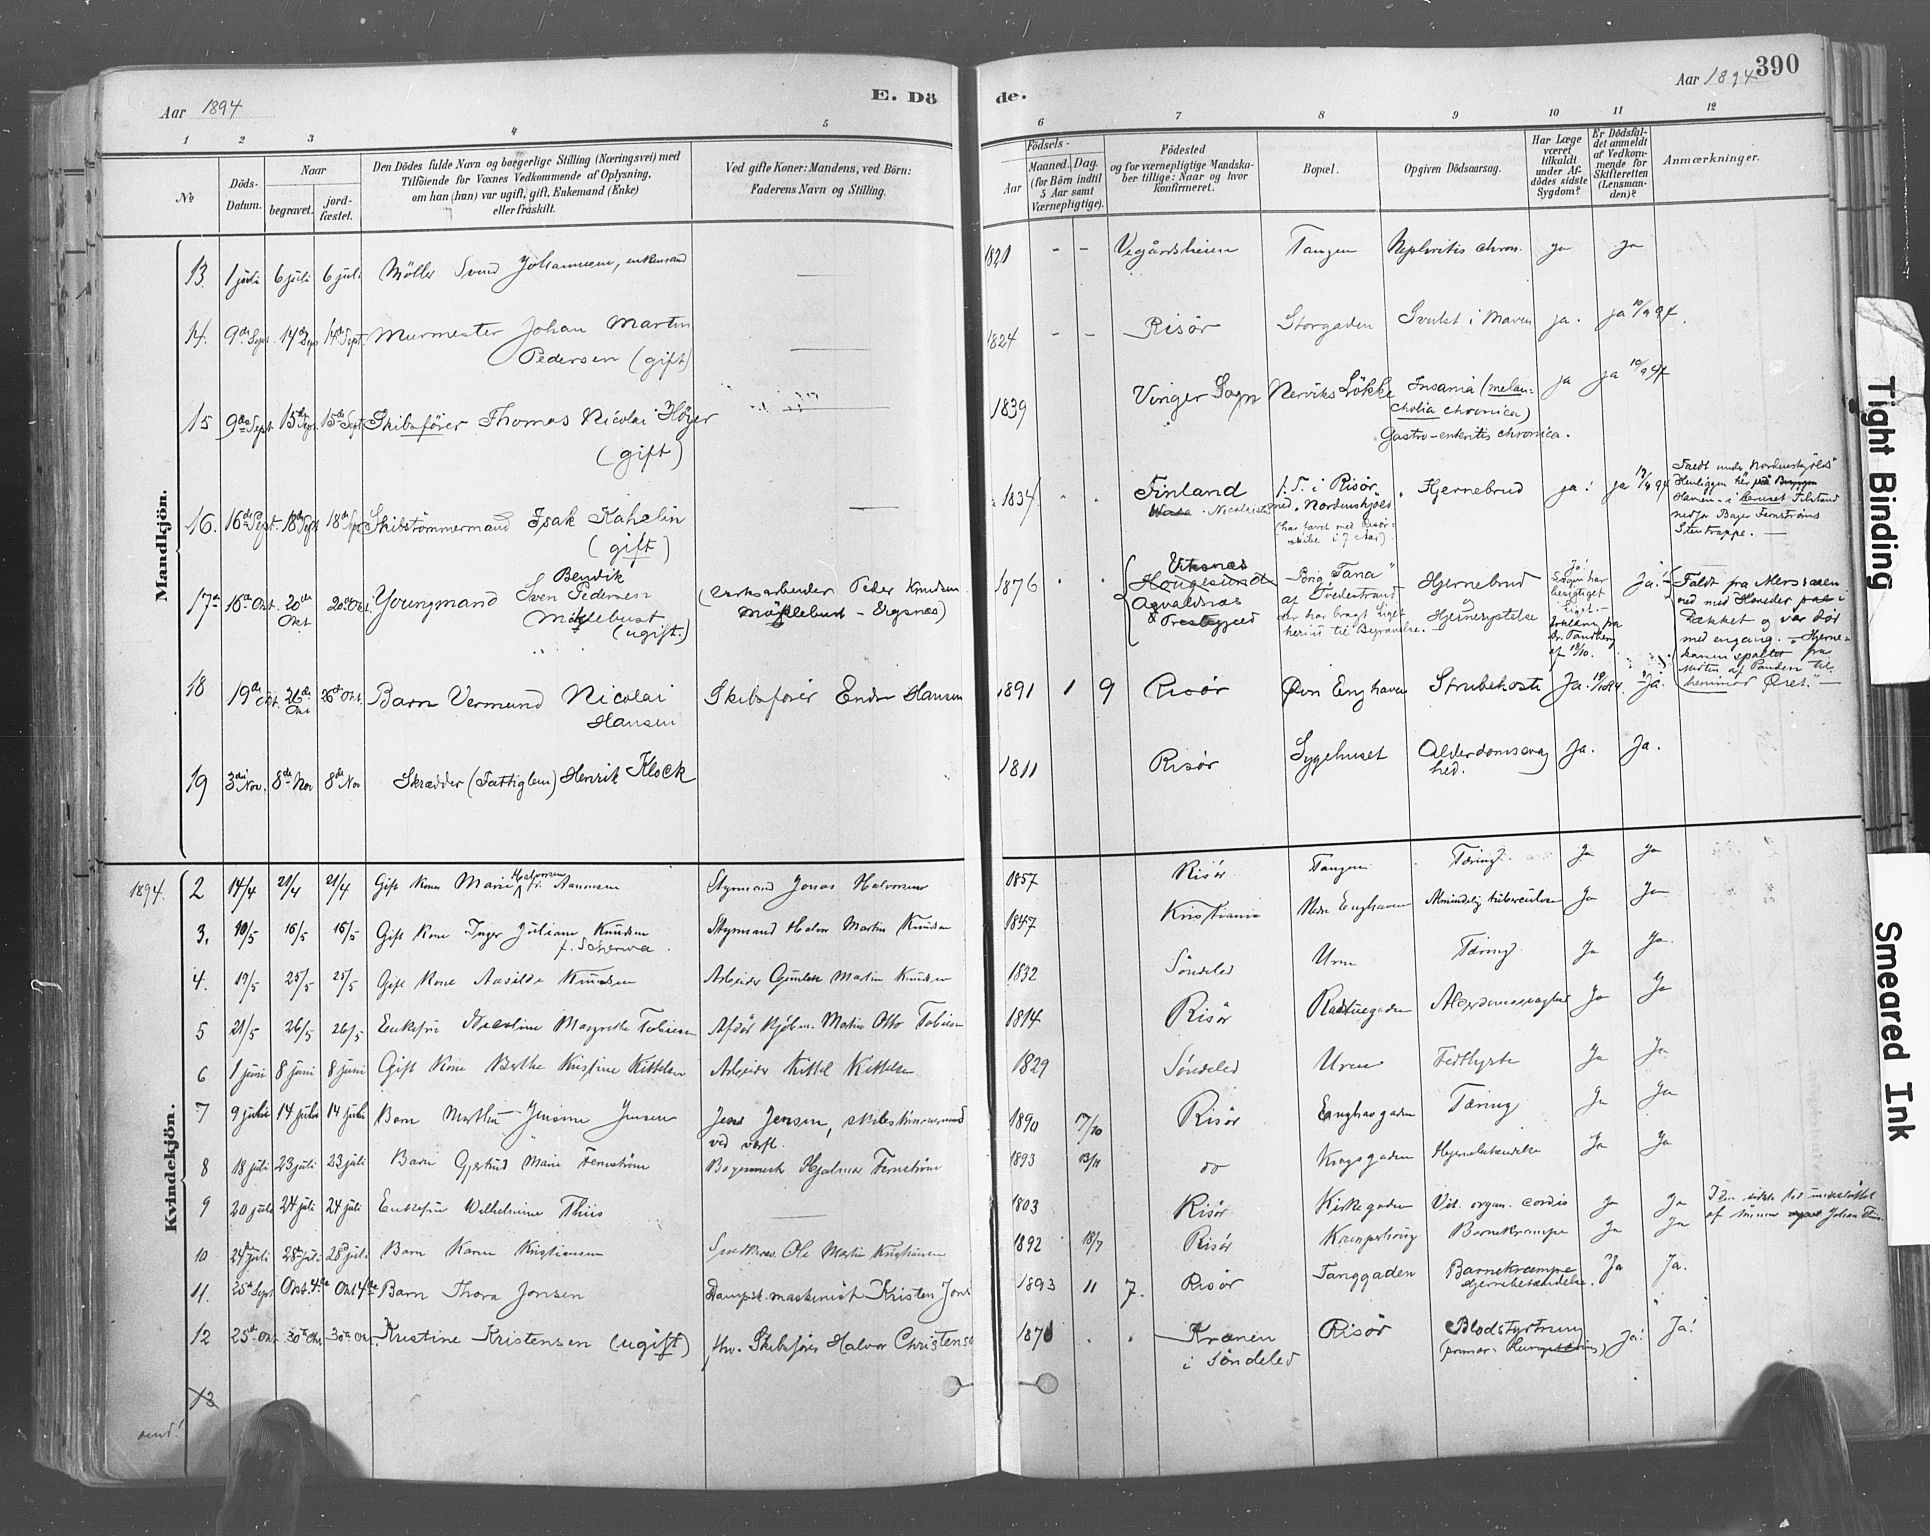 Aar 1894
E. Dö
de.
Aar 1894
390
1 2 3 4 5 6 7 8 9 10 11 12
No
Döds-Datum.
Naar
begravet.
jord-fæstet.
Den Dödes fulde Navn og borgerlige Stilling (Næringsvei) med
Tilföiende for Voxnes Vedkommende af Oplysning,
om han (hun) var ugift, gift, Enkemand (Enke)
eller fraskilt.
Ved gifte Koner: Mandens, ved Börn:
Faderens Navn og Stilling.
Födsels-
Aar
Maaned. Dag.
(for Börn indtil
5 Aar samt
Værnepligtige).
Födested
og for værnepligtige Mandska-
ber tillige: Naar og hvor
konfirmeret.
Bopæl.
Opgiven Dödsaarsag.
Har Læge
været
tilkaldt
under Af-
dödes sidste
Sygdom?
Er Dödsfal-
det anmeldt
af Vedkom-
mende for
Skifteretten
(Lensman-
den)?
Anmærkninger.
Mandkjön.
13. 1 juli 6 juli 6 juli Möller Svend Johannesen, enkemand — 1821 - - Vegårdsheien Tangen Nephritis chron. ja ja
14. 9de Sept. 14de Sept 14de Sept. Murmester Johan Martin
Pedersen (gift) — 1824 - - Risör Storgaden Svulst i Maven ja. ja 10/9 94.
15 9de Sept. 15de Sept. 15de Sept. Skibsförer Thomas Nicolai Höyer
(gift) — 1839 Vinger Sogn Nerviks Lökke Insania (melan-
cholia chronica)
Gastro-enteritis chronica. ja ja 10/9 94
16. 16de Sept. 18de Sept 18de Sept Skibstömmermand Isak Kahelin
(gift) — 1834 Finland
Wasa. Nicolaistad
p. T. i Risör
med "Nordenskjöld"
(har faret med Risör-
skibe i 7 Aar).
Hjernebrud ja! ja 19/9 94
Faldt under "Nordenskjölds"
Henliggen her på
Havnen i beruset Tilstand
ned for Bager Fernströms
Stentrappe. —
17de 16de Okt. 20de Okt 20de Okt. Youngmand Sven Bendik Pedersen
Möklebust (ugift.)
(Verksarbeider Peder Knudsen
Möklebust - Eigsnæs)
1876 Viksnæs
Hougesund
Agvaldsnæs
Præstegjeld
"Tana"
af Tvedestrand
der har bragt Liget
herind til Begravelse.
Hjernebrud
og
Hjernerystelse
Ja!
Lægen har
besigtiget
Liget.—
Erklæring fra
Dr.
af 18/10.
Ja!
Faldt fra Mersraaen
ned med Hovedet i
Dækket og var död
med engang. — "Hjerne-
kassen spaltet fra
Midten af Panden til
henimod Öret." —
18 19de Okt. 26de Okt 26de Okt. Barn Vermund Nicolai
Hansen Skibsförer Endre Hansen 1891 1 9 Risör Övre Enghaven Strubehoste Ja. 19/10 94. Ja.
19 3die Nov. 8de Nov 8de Nov Skrædder (Fattiglem) Henrik Klock 1811 Risör Sygehuset Alderdomssvag
hed. Ja. Ja.
Kvindekjön.
1894. 2 14/4 21/4 21/4 Gift Kone Marie Halvorsen f. Aanonsen Styrmand Jonas Halvorsen 1857 Risör Tangen Tæring. Ja Ja
3. 10/5 16/5 16/5 Gift Kone Inger Juliane Knudsen
f. Styrmand Halvor Martin Knudsen 1847 Kristiania Nedre Enghaven Almindelig tuberculose Ja Ja
4. 19/5 25/5 25/5 Gift Kone Aasilde Knudsen Arbeider Martin Knudsen 1832 Söndeled Uren Tæring. Ja Ja.
5 21/5 26/5 26/5 Enkefru Nicoline Margrethe Tobiesen Afdör Kjöbm. Martin Otto Tobiesen 1814 Risör Raadhusgaden Alderdomssvaghed Ja Ja
6 1 juni 8 juni 8 juni Gift Kone Berthe Kristine Kittelsen Arbeider Kittel Kittelsen 1829 Söndeled Uren Ja Ja
7 9 juli 14 juli 14 juli Barn Marthe Jensine Jensen Jens Jensen, skibstömmermand
ved værft. 1890 17/10 Risör Enghavgaden Tæring Ja Ja
8 18 juli 23 juli 23 juli Barn Gjertrud Marie Fernström Bagermester Hjalmar Fernström 1893 13/11 do Krags gaden Hjernebetændelse Ja Ja
9 20 juli 24 juli 24 juli Enkefru Wilhelmine Thiis — 1803 Risör Kirkegaden Vit. organ. cordis Ja Ja
I den sidste tid understöttet
af sönnen Johan Thiis.
10 24 juli 28 juli 28 juli Barn Karen Kristiansen Ole Martin Kristiansen 1892 18/7 Risör Kamperhaug Barnekrampe Ja Ja
11. 25de Sept Okt. 4de Okt 4de Barn Thora Jonsen Dampsk.maskinist Kristen Jons 1893 11 7. Risör Tanggaden Barnekrampe
Hjernebetændelse. Ja Ja.
12 25de Okt 30te Okt. 30te Okt. Kristine Kristensen (ugift) Skibsförer Halvor Christens 1871 Kranen
i Söndeled Risör Blodstyrtning
(primær: ) Ja! Ja!
13
Tight Binding
Smeared Ink